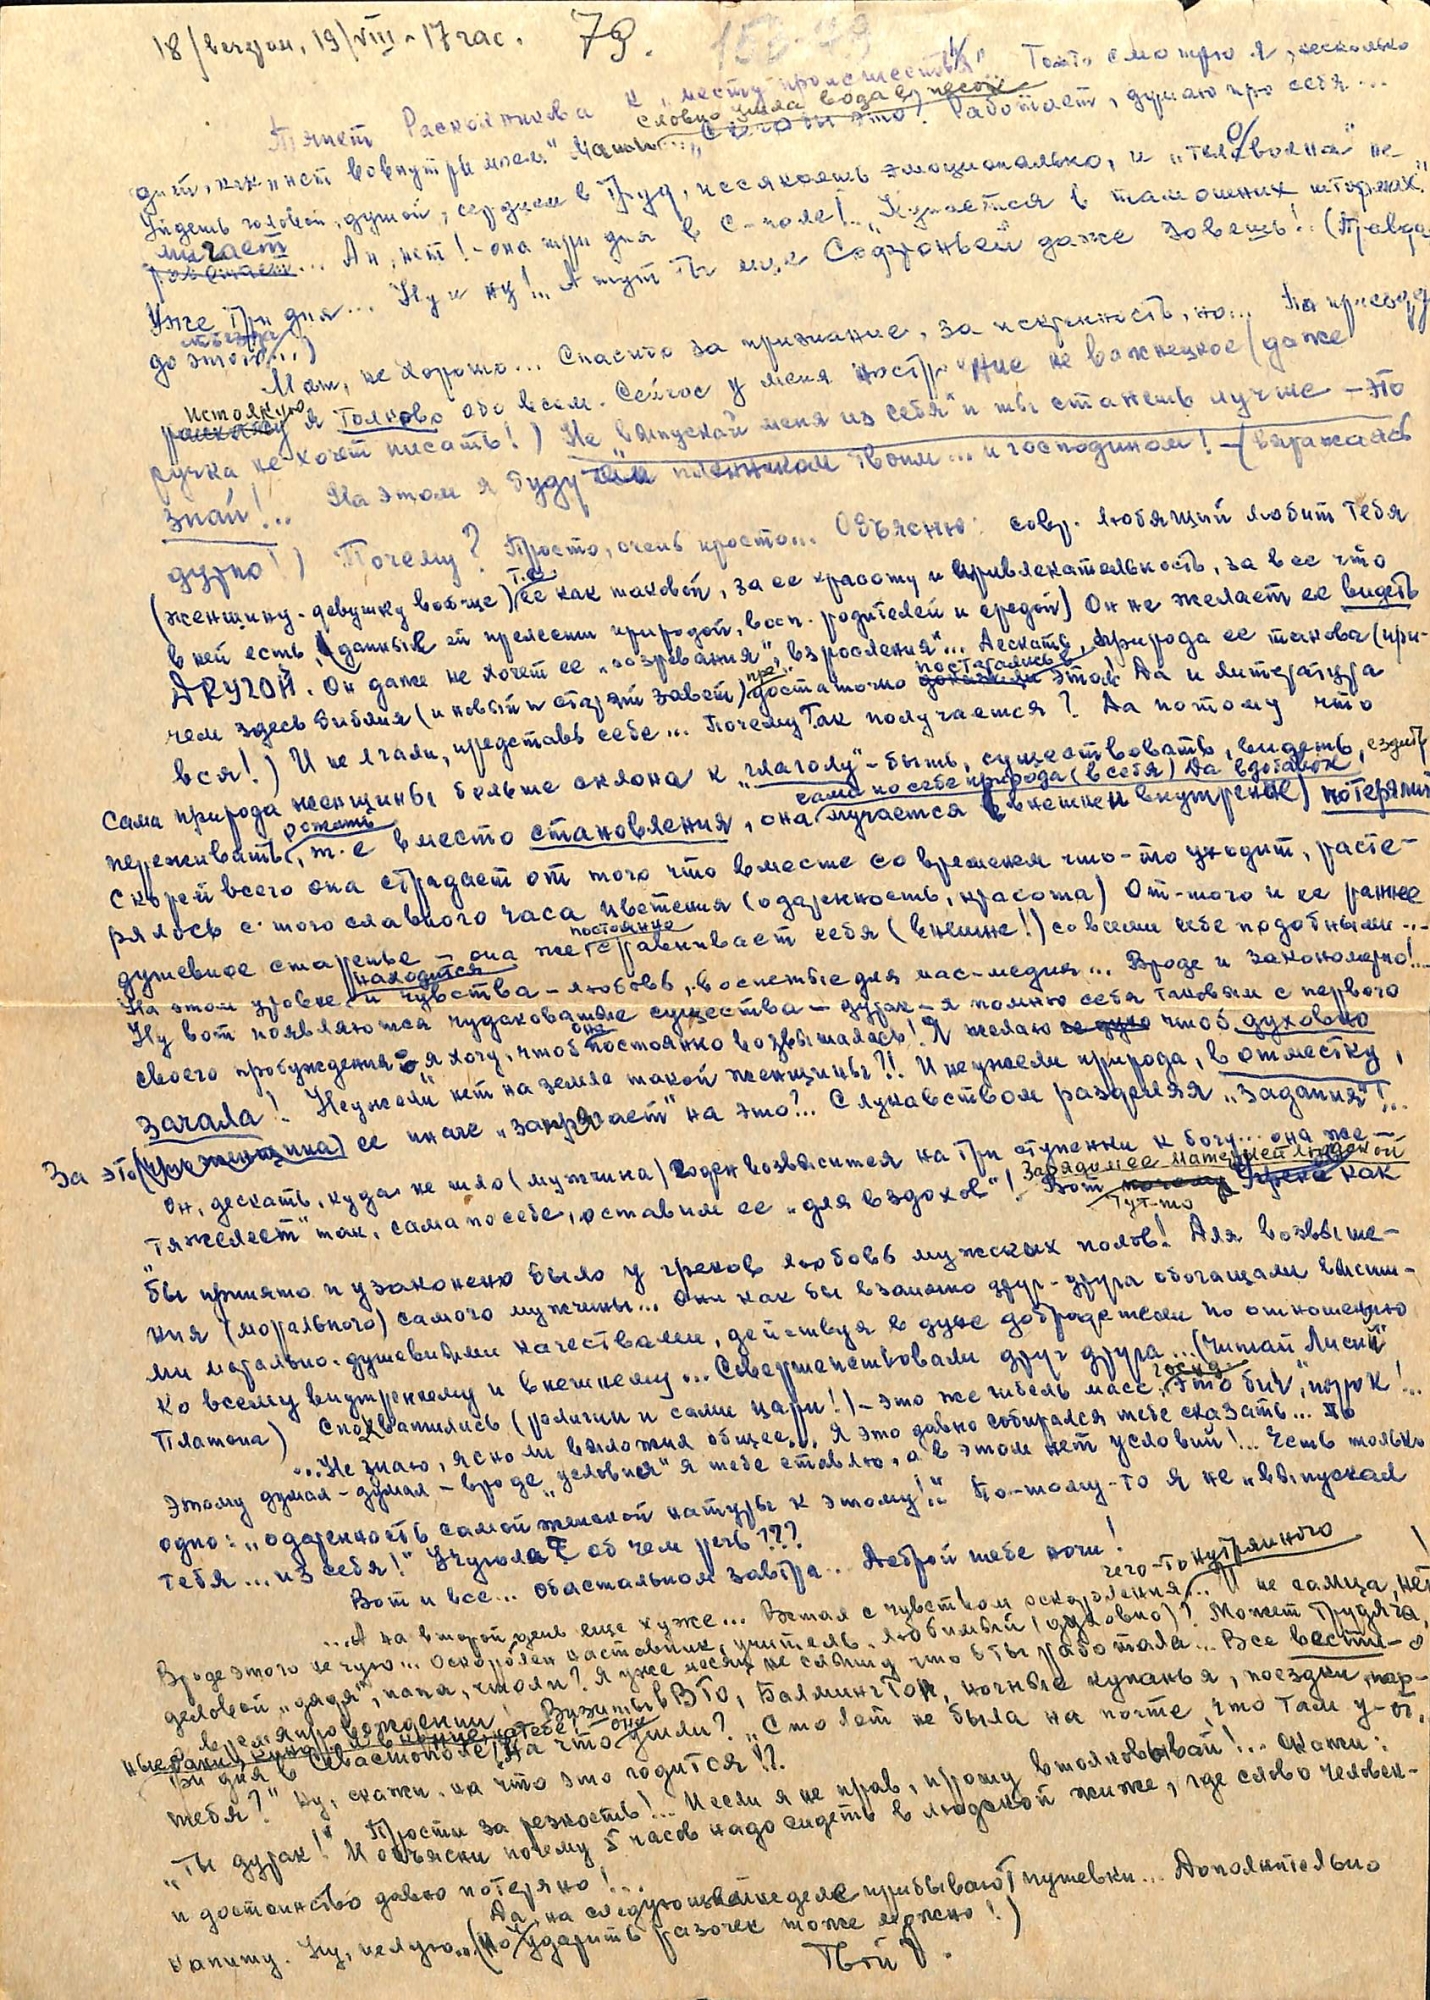 18/вечером, 19/VIII - 17 час. 79.
Тянет Раскольникова к „месту происшествия" Тоже смотрю я, несколько
словно ушла вода в песок
Работает, думаю про себя...
Уйдешь головой, душой, сердцем в Труд, иссякаешь эмоционально, и
мучает
... Ан, нет! - она три дня в С-поле!.. Купается в тамошних штормах."
Уже три дня... Ну и ну!.. А тут ты еще даже зовешь! (Правда
до этого...)
Мат, не хорошо... Спасибо за признание, за искренность, но... По приезду
истолкую
я толково обо всем. Сейчас у меня настроение не важнецкое (даже
ручка не хочет писать!) Не выпускай меня из себя" и ты станешь лучше - это
знай!.. На этом я буду пленником твоим... и господином! - (выражаясь
дурно!) Почему? Просто, очень просто... Объясню: совр. любящий любит тебя
(женщину-девушку вообще) т.е. ее как таковой, за ее красоту и привлекательность, за все что
в ней есть, (данные ей прелести природой, восп. родителей и средой) Он не желает ее видеть
ДРУГОЙ. Он даже не хочет ее „созревания", взросления"... Дескать, природа ее такова (при-
постарались в
чем здесь библия (и новый и старый завет) достаточно этом! Да и литература
вся!) И не лгали, представь себе... Почему так получается? Да потому что
сама природа женщины больше склона к „глаголу" - быть, существовать, видеть, ездить
сама по себе природа (в себя) Да вдобавок
переживать, рожать т.е вместо становления, она мучается внешне и внутренне) потерями
Скорей всего она страдает от того что вместе со временем что-то уходит, расте-
рялось с того славного часа цветения (одаренность, красота) От-того и ее раннее
душевное старенье - она же постоянно сравнивает себя (внешне!) со всеми себе подобными...
На этом уровне находится и чувства - любовь, воспетые для мас-медия... Вроде и закономерно!..
Ну вот появляются чудаковатые существа - дурак - я помню себя таковым с первого
своего пробуждения - я хочу, чтоб она постоянно возвышалась! Я желаю чтоб духовно
зачала! Неужели нет на земле такой женщины?!! И неужели природа, в отместку,
За это ее иначе „закрячает" на это?.. С лукавством разделяя „Задания"!...
Он, дескать, куда не шло (мужчина) годен возвысится на три ступеньки к богу... она же -
Зарядом ее материей людской
„тяжелеет" так, сама по себе, оставим ее „для вздохов"! Вот Тут-то как
бы принято и узаконено было у греков любовь мужских полов! Для возвыше-
ния (морального) самого мужчины... Они как бы взаимно друг-друга обогащали высши-
ми морально-душевными качествами, действуя в духе добродетели по отношению
ко всему внутреннему и внешнему... Совершенствовали друг друга... (Читай Лисий"
Платона) Спохватились (религии и сами цари!) - это же гибель масс, госуд. Это бич, порок!..
...Не знаю, ясно ли выложил общее... Я это давно собирался тебе сказать... По
этому думал - думал - вроде „условия" я тебе ставлю, а в этом нет условий!... Есть только
одно: „одаренность самой женской натуры к этому!.." По-тому-то я не „выпускал
тебя... из себя!" Учуяла? об чем речь???
Вот и все... Обастальном завтра... Доброй тебе ночи!
...А на второй день еще хуже... Встал с чувством оскорбления чего-то нутряного... И не самца, нет!
Вроде этого не чую... Оскорблен наставник, учитель, любимый (духовно)? Может трудяга,
деловой „дядя", папа, чтоли? Я уже месяц не слышу что б ты работала... Все вести - о
времяпровождении! Визиты в ВТО, Балмингтон, ночные купанья, поездки,
Три дня в Севастополе! На что они ушли? „Сто лет не была на почте, что там у-от
тебя?" Ну, скажи, на что это годится!?
Прости за резкость!... И если я не прав, прошу втолковывай!... скажи:
„Ты дурак!" И объясни почему 5 часов надо сидеть в людской жиже, где слово человек-
и достоинство давно потеряно!...
Да, на следующей неделе прибывают путевки... Дополнительно
напишу. Ну, целую... (но ударить разочек тоже можно!)
Твой V.